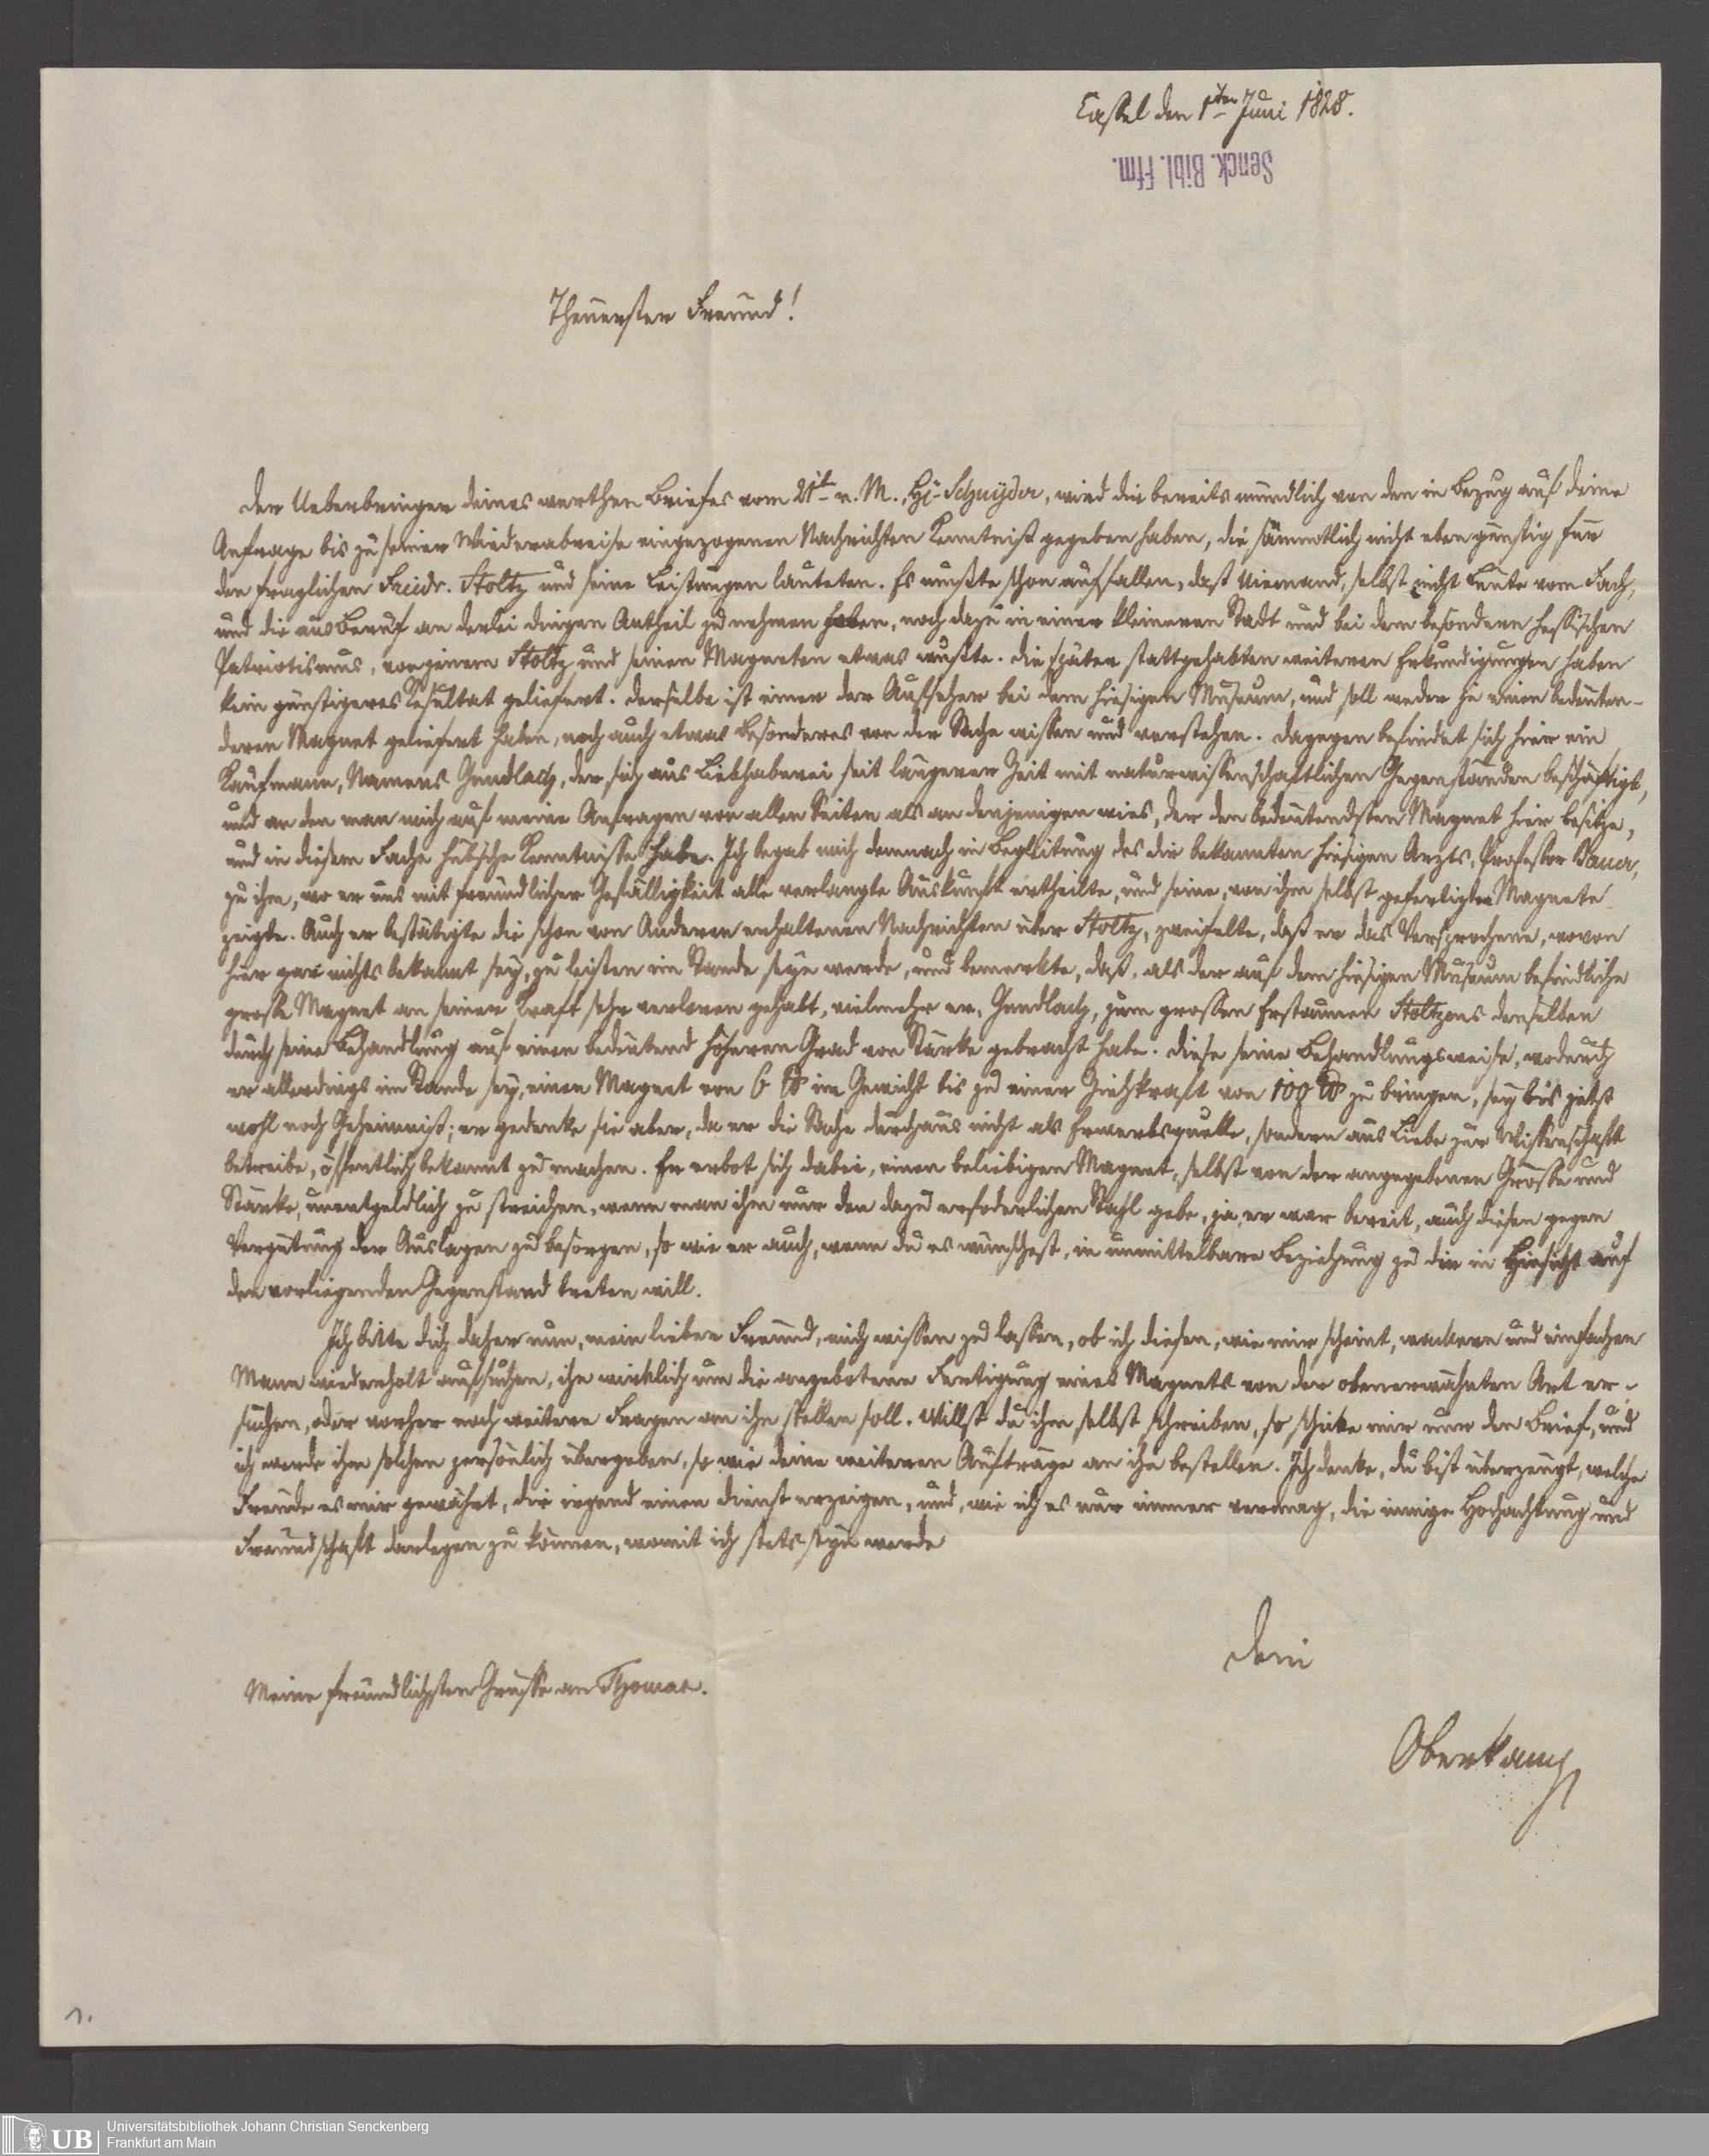 Cassel den 1ten Juni 1828.
Senck. Bibl. Ffm.
Theuerster Freund!
Der Ueberbringer deines werthen Briefes vom 21t v. M., Hr. Schnyder, wird dir bereits mündlich von den in Bezug auf deine
Anfrage bis zu seiner Wiederabreise eingezogenen Nachrichten Kenntniß gegeben haben, die sämmtlich nicht eben günstig für
den fraglichen Friedr. Stoltz und seine Leistungen lauteten. Es mußte schon auffallen, daß Niemand, selbst nicht Leute vom Fach,
und die aus Beruf an derlei Dingen Antheil zu nehmen haben, noch dazu in einer kleineren Stadt und bei dem besondern hessischen
Patriotismus, von jenem Stoltz und seinen Magneten etwas wußte. Die später stattgehabten weiteren Erkundigungen haben
kein günstigeres Resultat geliefert. Derselbe ist einer der Aufseher bei dem hiesigen Museum, und soll weder je einen bedeuten-
deren Magnet geliefert haben, noch auch etwas Besonderes von der Sache wissen und verstehen. Dagegen befindet sich hier ein
Kaufmann, Namens Gundlach, der sich aus Liebhaberei seit längerer Zeit mit naturwissenschaftlichen Gegenständen beschäftigt,
und an den man mich auf meine Anfragen von allen Seiten als an denjenigen wies, der den bedeutendsten Magnet hier besitze,
und in diesem Fache hübsche Kenntnisse habe. Ich begab mich demnach in Begleitung des dir bekannten hiesigen Arzts, Professor Bauer,
zu ihm, wo er uns mit freundlicher Gefälligkeit alle verlangte Auskunft ertheilte, und seine, von ihm selbst gefertigten Magnete
zeigte. Auch er bestätigte die schon von Anderen erhaltenen Nachrichten über Stoltz, zweifelte, daß er das Versprochene, wovon
hier gar nichts bekannt sey, zu leisten im Stande seyn werde, und bemerkte, daß, als der auf dem hiesigen Museum befindliche
große Magnet an seiner Kraft sehr verloren gehabt, vielmehr er, Gundlach, zum grossen Erstaunen Stoltzens denselben
durch seine Behandlung auf einen bedeutend höheren Grad von Stärke gebracht habe. Diese seine Behandlungsweise, wodurch
er allerdings im Stande sey, einen Magnet von 6 ℔ im Gewicht bis zu einer Ziehkraft von 100 ℔ zu bringen, sey bis jetzt
wohl noch Geheimniß; er gedenke sie aber, da er die Sache durchaus nicht als Erwerbsquelle, sondern aus Liebe zur Wissenschaft
betreibe, öffentlich bekannt zu machen. Er erbot sich dabei, einen beliebigen Magnet, selbst von der angegebenen Grösse und
Stärke, unentgeldlich zu streichen, wenn man ihm nur den dazu erforderlichen Stahl gebe, ja, er war bereit, auch diesen gegen
Vergütung der Auslagen zu besorgen, so wie er auch, wenn du es wünschest, in unmittelbare Beziehung zu dir in Hinsicht auf
den vorliegenden Gegenstand treten will.
Ich bitte dich daher nun, mein lieber Freund, mich wissen zu lassen, ob ich diesen, wie mir scheint, wackeren und einfachen
Mann wiederholt aufsuchen, ihn wirklich um die angebotene Fertigung eines Magnets von der obenerwähnten Art er-
suchen, oder vorher noch weitere Fragen an ihn stellen soll. Willst du ihm selbst schreiben, so schicke mir nur den Brief, und
ich werde ihm solchen persönlich übergeben, so wie deine weiteren Aufträge an ihn bestellen. Ich denke, du bist überzeugt, welche
Freude es mir gewährt, dir irgend einen Dienst erzeigen, und, wie ich es nur immer vermag, die innige Hochachtung und
Freundschaft darlegen zu können, womit ich stets seyn werde
Dein
Meine freundlichsten Grüsse an Thomae.
Oberkamp
1.
UB
Universitätsbibliothek Johann Christian Senckenberg
Frankfurt am Main